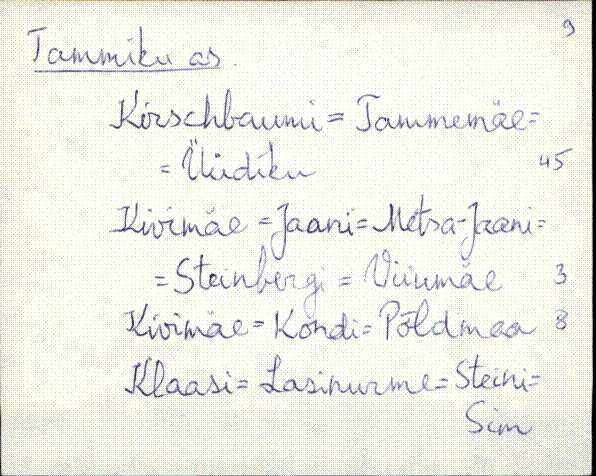 9
Tammiku as.
Kirschbaumi = Tammemäe =
= Üüdiku 45
Kivimäe = Jaani = Metsa-Jaani =
= Steinbergi = Viiumäe 3
Kivimäe = Kondi = Põldmaa 8
Klaasi = Lasinurme = Steini =
Sim